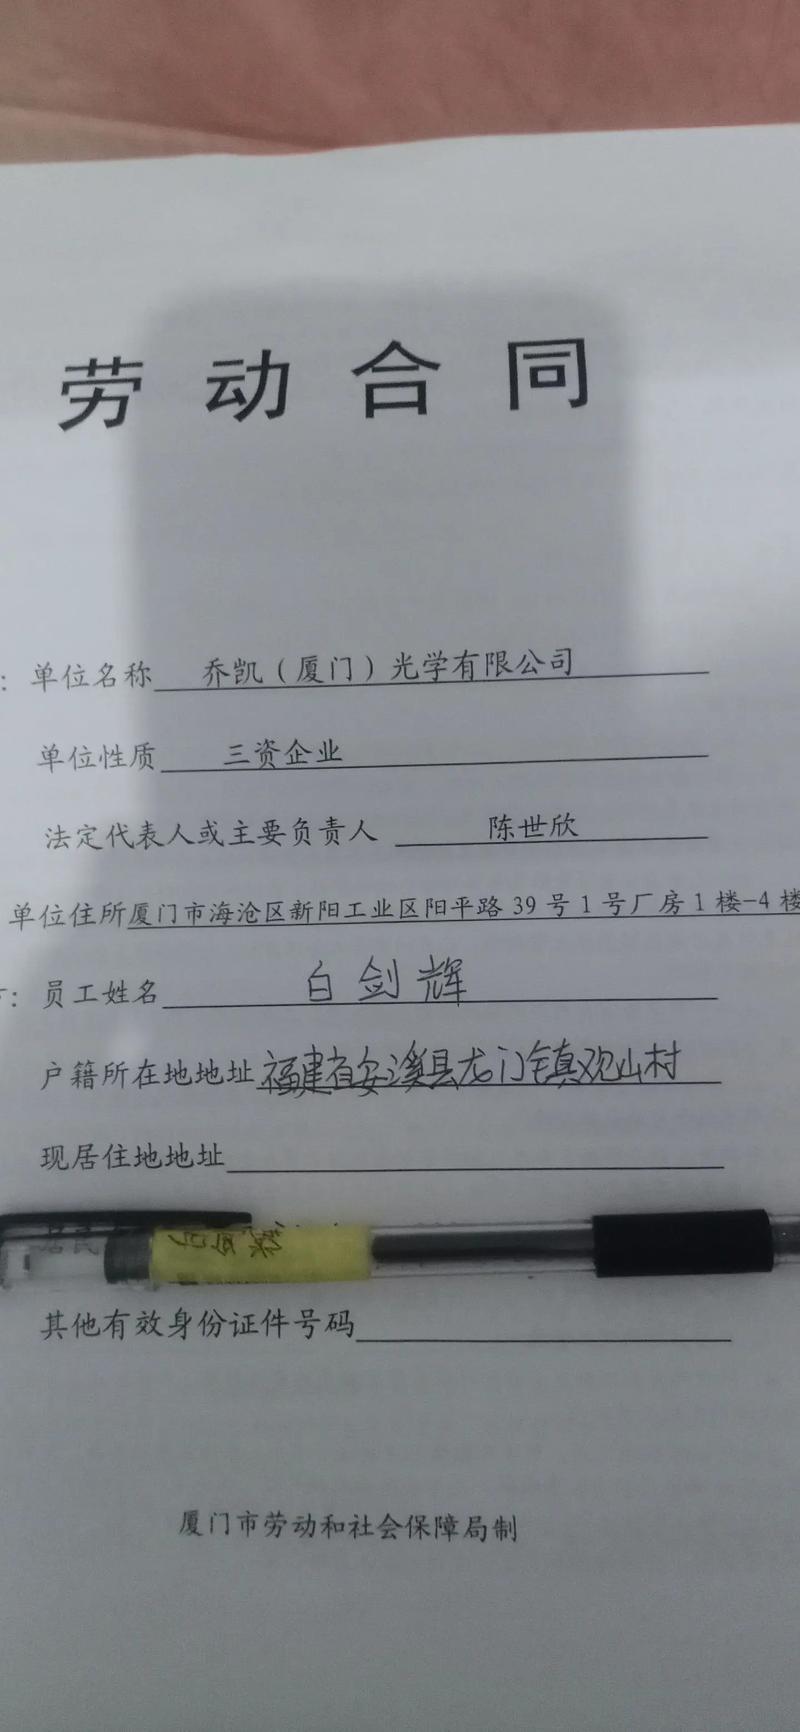 劳动合同
：单位名称 乔凯（厦门）光学有限公司
单位性质 三资企业
法定代表人或主要负责人 陈世欣
单位住所厦门市海沧区新阳工业区阳平路 39 号 1 号厂房 1 楼-4 楼
：员工姓名 白剑辉
户籍所在地地址 福建省安溪县龙门镇观山村
现居住地地址
居民
其他有效身份证件号码
厦门市劳动和社会保障局制